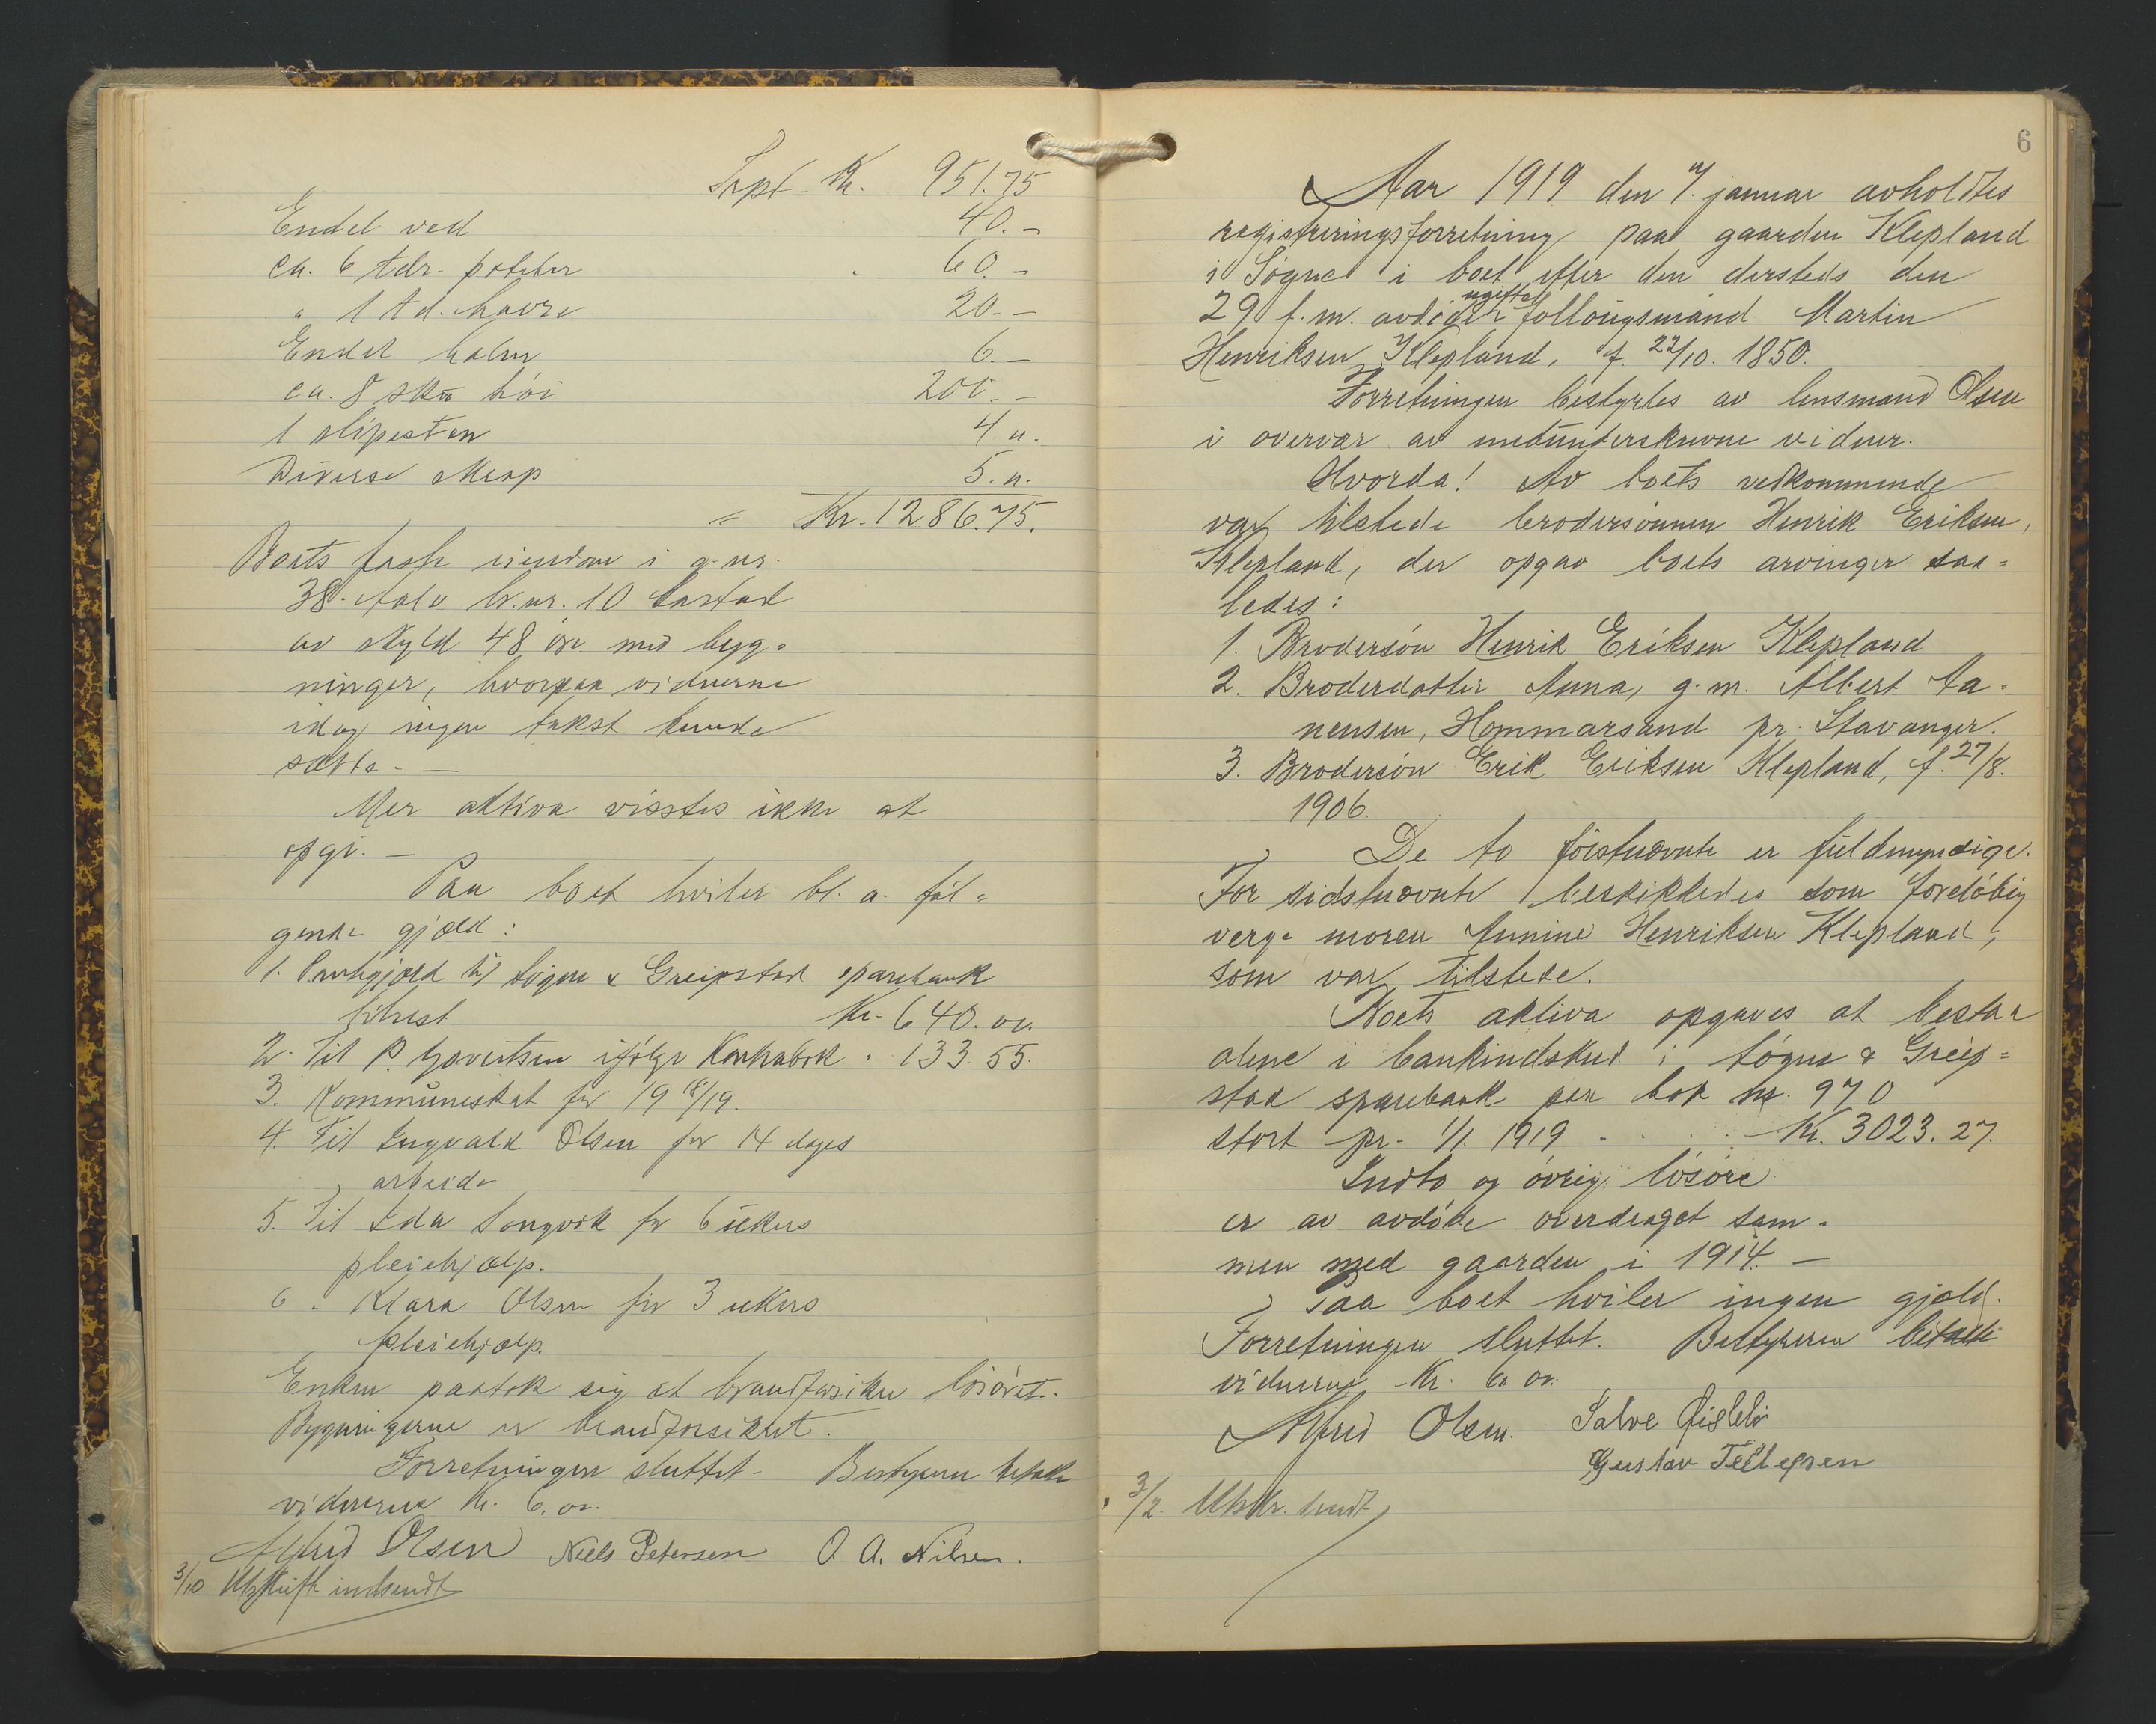 Trpt. Kr. 951.75
Endel ved 40.-
ca. 6 tdr. poteter " 60.-
" 1 td. havre 20.-
Endel halm 6.-
ca. 8 høi 200.-
1 slipesten 4 ".
Diverse skrap 5. ".
= Kr. 1286.75.
Boets faste eiendom i g.nr.
38. br.nr. 10
av skyld 48 øre med byg=
ninger, hvorpaa vidnerne
idag ingen takst kunde
sætte. -
Mer aktiva visstes ikke at
opgi. -
Paa boet hviler bl. a. føl=
gende gjæld:
1. til Søgne & Greipstad sparebank
tilrest Kr. 640. oo.
2. Til P. Govertsen ifølge Kontrabok " 133.55.
3. Kommuneskat for 19 18/19.
4. Til Ingvald Olsen for 14 dages
arbeide
5. Til Ida Songvik for 6 ukers
pleiehjælp.
6 " Klara Olsen for 3 ukers
pleiehjælp.
Enken paatok sig at brandforsikre løsøret.
Bygningerne er brandforsikret.
Forretningen sluttet. Bestyreren betalte
vidnerne Kr. 6. oo.
Alfred Olsen Niels Petersen O. A. Nilsen.
3/10 Utskrift indsendt
6
Aar 1919 den 7. januar avholdtes
registreringsforretning paa gaarden Klepland
i Søgne i boet efter den dersteds den
ugifte
29 f.m. avdøde follaugsmand Martin
Henriksen Klepland, f. 22/10. 1850.
Forretningen bestyrtes av lensmand Olsen
i overvær av medunderskrevne vidner.
Hvorda! Av boets vedkommende
var tilstede brodersønnen Henrik Eriksen,
Klepland, der opgav boets arvinger saa=
ledes:
1. Brodersøn Henrik Eriksen Klepland
2. Broderdatter Anna, g. m. Albert Aa=
nensen, Hommarsand pr. Stavanger.
3. Brodersøn Erik Eriksen Klepland, f. 27/8.
1906.
De to førstnævnte er fuldmyndige.
For sidstnævnte beskikkedes som foreløbig
verge moren Annine Henriksen Klepland,
som var tilstede.
Boets aktiva opgaves at bestaa
alene i bankindskud i Søgne & Greip=
stad sparebank paa bok nr. 970
stort pr. 1/1 1919 . . . . Kr. 3023.27.
Indbo og øvrig løsøre
er av avdøde overdraget sam=
men med gaarden i 1914. -
Paa boet hviler ingen gjæld.
Forretningen sluttet. Bestyreren betalte
vidnerne Kr. 6 oo.
Alfred Olsen. Salve
Gustav Tellefsen
3/2. Utskr. sendt